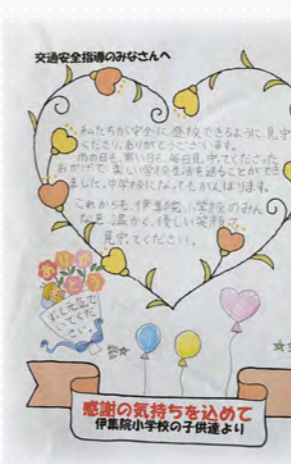 交通安全指導のみなさんへ
私たちが安全に登校できるように、見守
くださり、ありがとうございます。
雨の日も、寒い日も、毎日見守ってくださった
おかげで、楽しい学校生活を送ることができ
ました。中学校になってもがんばります。
これからも、伊集院小学校のみん
なを、温かく、優しい笑顔で、
見守ってください。
ありがとう
お元気で
いてくだ
さい。
感謝の気持ちを込めて
伊集院小学校の子供達より